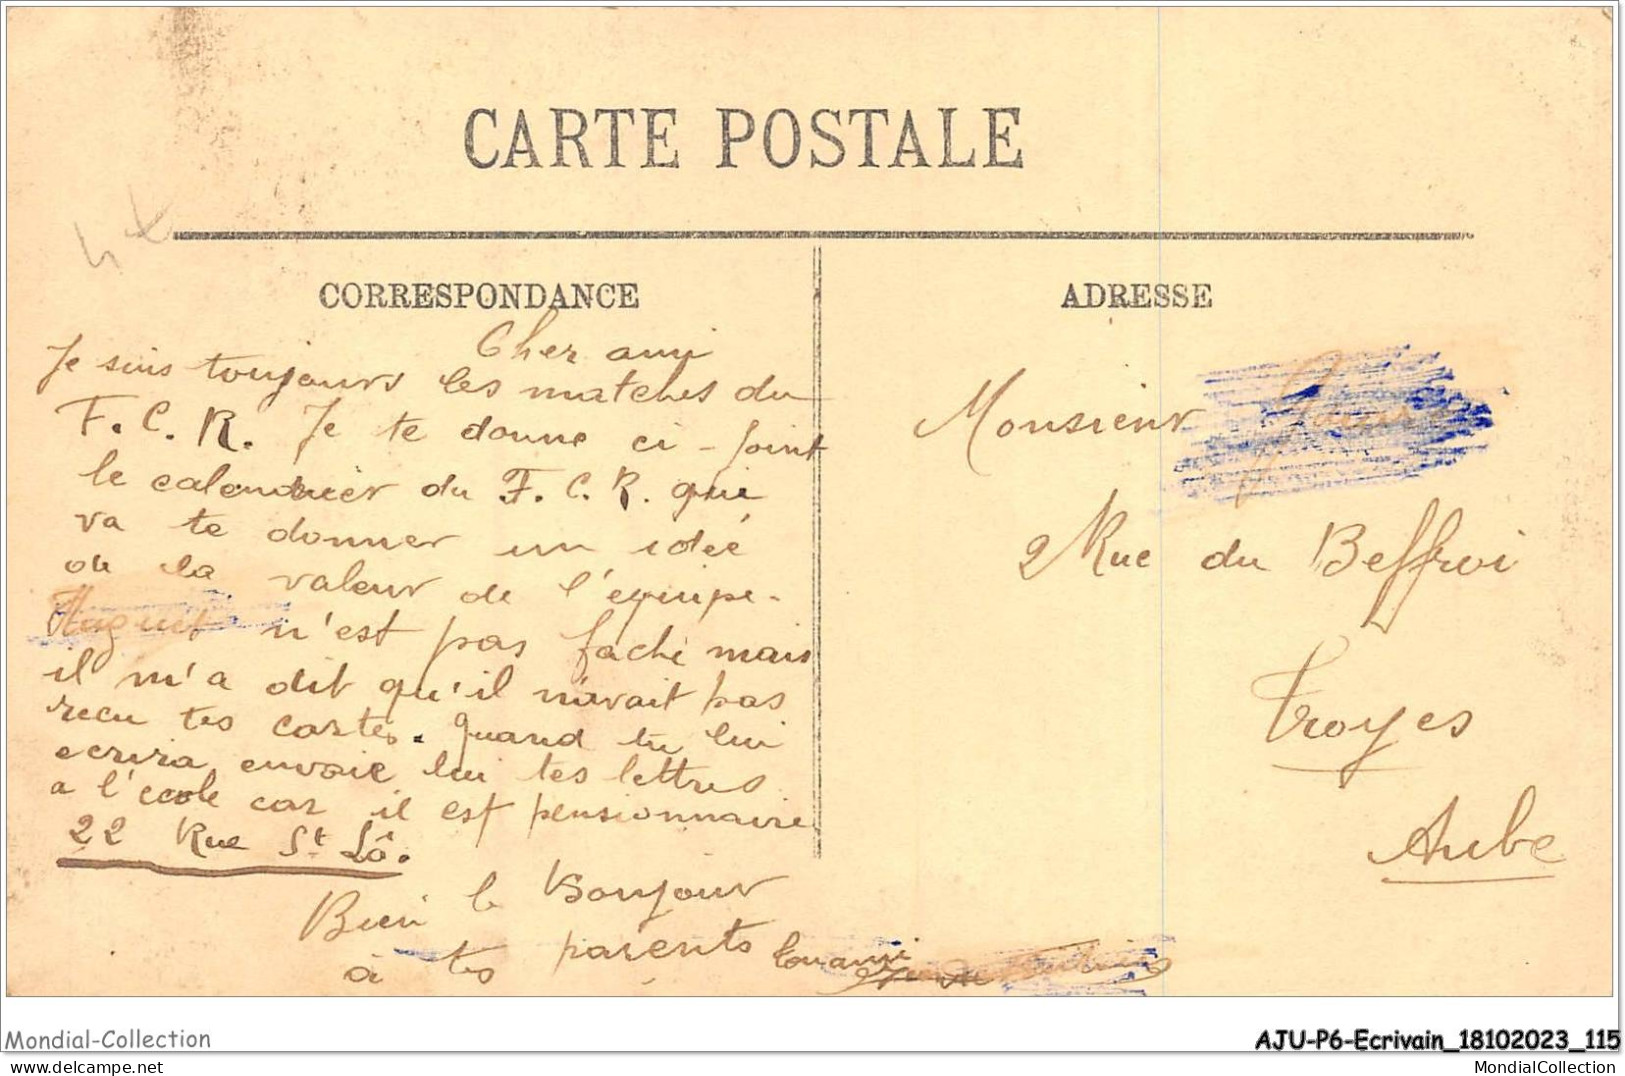 CARTE POSTALE
CORRESPONDANCE
Cher ami
Je suis toujours les matches du
F.C.R. Je te donne ci-joint
le calendrier du F.C.R. qui
va te donner un idée
de la valeur de l'équipe.
Huguet n'est pas faché mais
il m'a dit qu'il n'avait pas
recu tes cartes. Quand tu lui
ecrira envoie lui tes lettres
a l'école car il est pensionnaire
22 Rue St Lô.
Bien le Bonjour
à tes parents ton ami
ADRESSE
Monsieur
2 Rue du Beffroi
Troyes
Aube
Mondial-Collection
AJU-P6-Ecrivain_18102023_115
MondialCollection